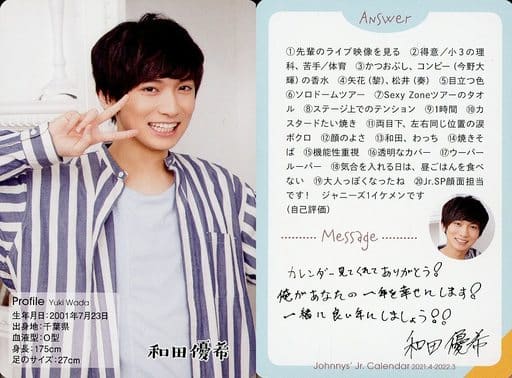 Profile Yuki Wada
生年月日:2001年7月23日
出身地:千葉県
血液型:O型
身長:175cm
足のサイズ:27cm
和田優希
Answer
①先輩のライブ映像を見る ②得意/小3の理
科、苦手/体育 ③かつおぶし、コンビー(今野大
輝)の香水 ④矢花(黎)、松井(奏) ⑤目立つ色
⑥ソロドームツアー ⑦Sexy Zoneツアーのタオ
ル ⑧ステージ上でのテンション ⑨1時間 ⑩カ
スタードたい焼き ⑪両目下、左右同じ位置の涙
ボクロ ⑫顔のよさ ⑬和田、わっち ⑭焼きそ
ば ⑮機能性重視 ⑯透明なカバー ⑰ウーパー
ルーパー ⑱気合を入れる日は、昼ごはんを食べ
ない ⑲大人っぽくなったね ⑳Jr.SP顔面担当
です! ジャニーズ1イケメンです
(自己評価)
Message
カレンダー見てくれてありがとう!
俺があなたの一年を幸せにします!
一緒に良い年にしましょう!!
和田優希
Johnnys' Jr. Calendar 2021.4-2022.3